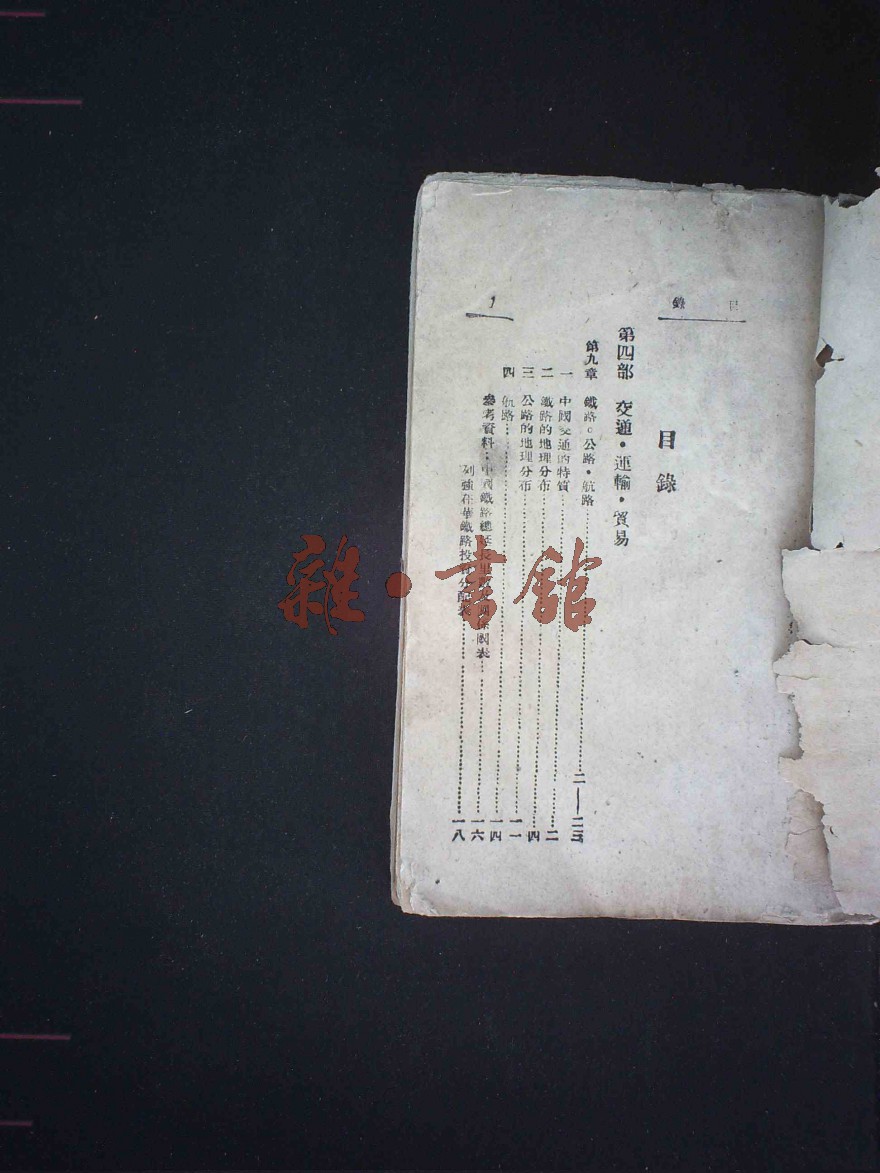 目錄
1
目錄
第四部 交通・運輸・貿易
第九章 鐵路。公路・航路……二——二三
一 中國交通的特質……二
二 鐵路的地理分布……四
三 公路的地理分布……一一
四 航路……一四
參考資料：中國鐵路總延長里 國係國表……一六
列強在華鐵路投 分配表……一八
雜・書館